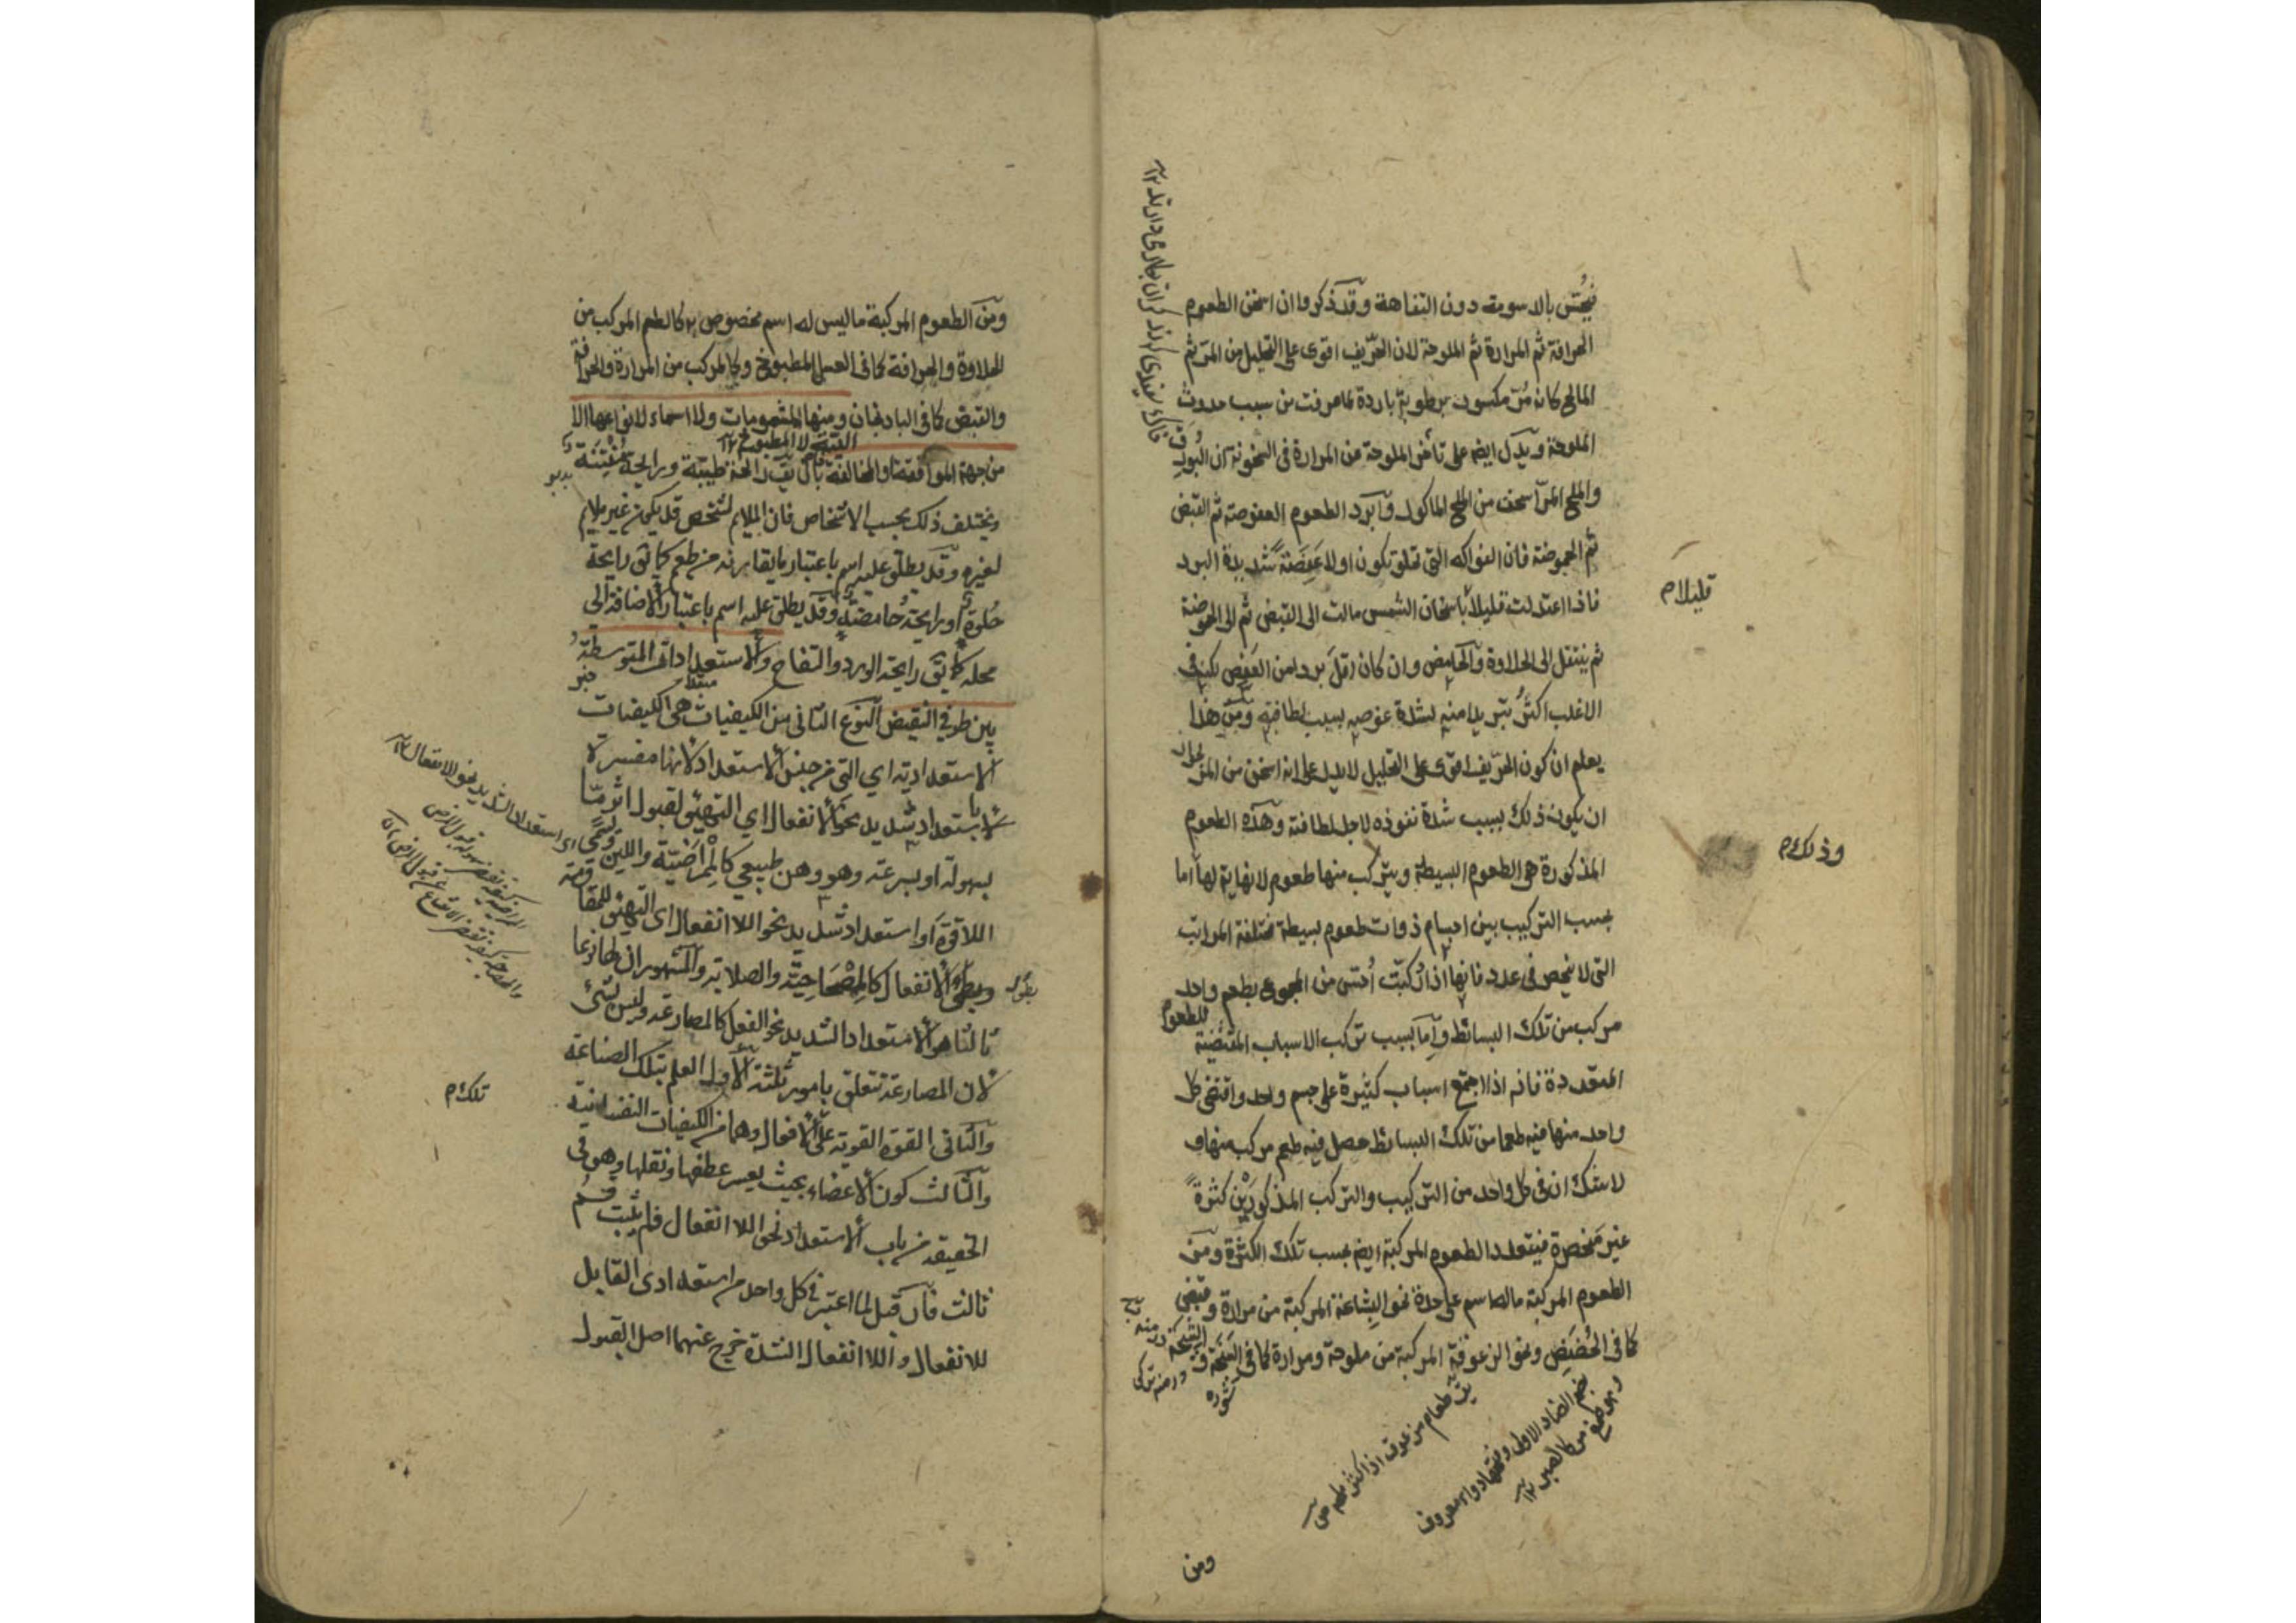 فيُحَسّ بالدسومة دون التفاهة وقد ذكروا ان اسخن الطعوم
الحرافة ثم المرارة ثم الملوحة لان الحرّيف اقوى على التحليل من المرّ ثم
المالح كانه مُرّ مكسور برطوبة باردة لما عرفت من سبب حدوث
الملوحة ويدل ايضا على تأخر الملوحة من المرارة فى السخونة ان البُورَق
والملح المرّ اسخن من الملح الماكول وآبرد الطعوم العفوصة ثم القبض
ثم الحموضة فان الفواكه التى تحلو تكون اولا عَفِصَةً شديدة البرد
فاذا اعتدلت قليلاً باسخان الشمس مالت الى القبض ثم الى الحموضة
ثم ينتقل الى الحلاوة والحامض وان كان اقلّ بردا من العَفِص لكنه فى
الاغلب اكثرُ تبريدا منه لشدة غوصه بسبب لطافته ومن هذا
يعلم ان كون الحرّيف اقوى على التحليل لا يدل على انه اسخن من المرّ لجواز
ان يكون ذلك بسبب شدة نفوذه لاجل لطافته وهذه الطعوم
المذكورة هى الطعوم البسيطة ويتركب منها طعوم لا نهاية لها اما
بحسب التركيب بين اجسام ذوات طعوم بسيطة مختلفة المراتب
التى لا تنحصر فى عدد فانها اذا رُكبّت اُحسّ من المجموع بطعم واحد
مركب من تلك البسائط وآما بسبب تركب الاسباب المقتضية للطعوم
المتعددة فانه اذا اجتمع اسباب كثيرة على جسم واحد واقتضى كل
واحد منها فيه طعما من تلك البسائط حصل فيه طعم مركب منها و
لا شك ان فى كل واحد من التركيب والتركب المذكورَيْن كثرةً
غير منحصرة فيتعدد الطعوم المركبة ايضا بحسب تلك الكثرة ومن
الطعوم المركبة ما لها اسم على حدة نحو البشاعة المركبة من مرارة وقبض
كما فى الحُضَض ونحو الزعوقة المركبة من ملوحة ومرارة كما فى السبخة
قليلا م
وذلك م
يق طعام مزعوق اذا كثر ملحه ص
بضم الضاد الاولى وفتحها دواء معروف
وهى صمغ مر كالصبر ١٢
ومن
ومن الطعوم المركبة ما ليس له اسم مخصوص به كالطعم المركب من
الحلاوة والحرافة كما فى العسل المطبوخ وكالمركب من المرارة والحرافة
والقبض كما فى الباذنجان ومنها المشمومات ولا اسماء لانواعها الا
من جهة الموافقة والمخالفة بان يق رائحة طيبة ورايحة مُنْتِنَة
ويختلف ذلك بحسب الاشخاص فان الملايم لشخص قد يكون غير ملايم
لغيره وقد يطلق عليه اسم باعتبار ما يقارنه من طعم كما يق رايحة
حُلوة او رايحة حامضة وقد يطلق عليه اسم باعتبار الاضافة الى
محله كما يق رايحة الورد والتفاح والاستعدادات المتوسطة
بين طرفي النقيض النوع الثانى من الكيفيات هى الكيفيات
الاستعدادية اي التى من جنس الاستعداد لانها مفسرة
باستعداد شديد نحو الانفعال اي التهيئ لقبول اثر مّا
بسهولة او بسرعة وهو وهن طبيعي كالمِمْراضيّة واللين وتسمى
اللاقوة او استعداد شديد نحو اللا انفعال اى التهيئ للمقاومة
وبطؤ الانفعال كالمِصْحَاحِيّة والصلابة والمشهور ان لها نوعا
ثالثا هو الاستعداد الشديد نحو الفعل كالمصارعة وليس بشئ
لان المصارعة تتعلق بامور ثلثة الاول العلم بتلك الصناعة
والثانى القوة القوية على الافعال وهما من الكيفيات النفسانية
والثالث كون الاعضاء بحيث يعسر عطفها ونقلها وهو فى
الحقيقة من باب الاستعداد نحو اللا انفعال فلم يثبت قسم
ثالث فان قيل لما اعتبر فى كل واحد من استعدادى القابل
للانفعال واللا انفعال الشدة خرج عنهما اصل القبول
بدبو
تلك م